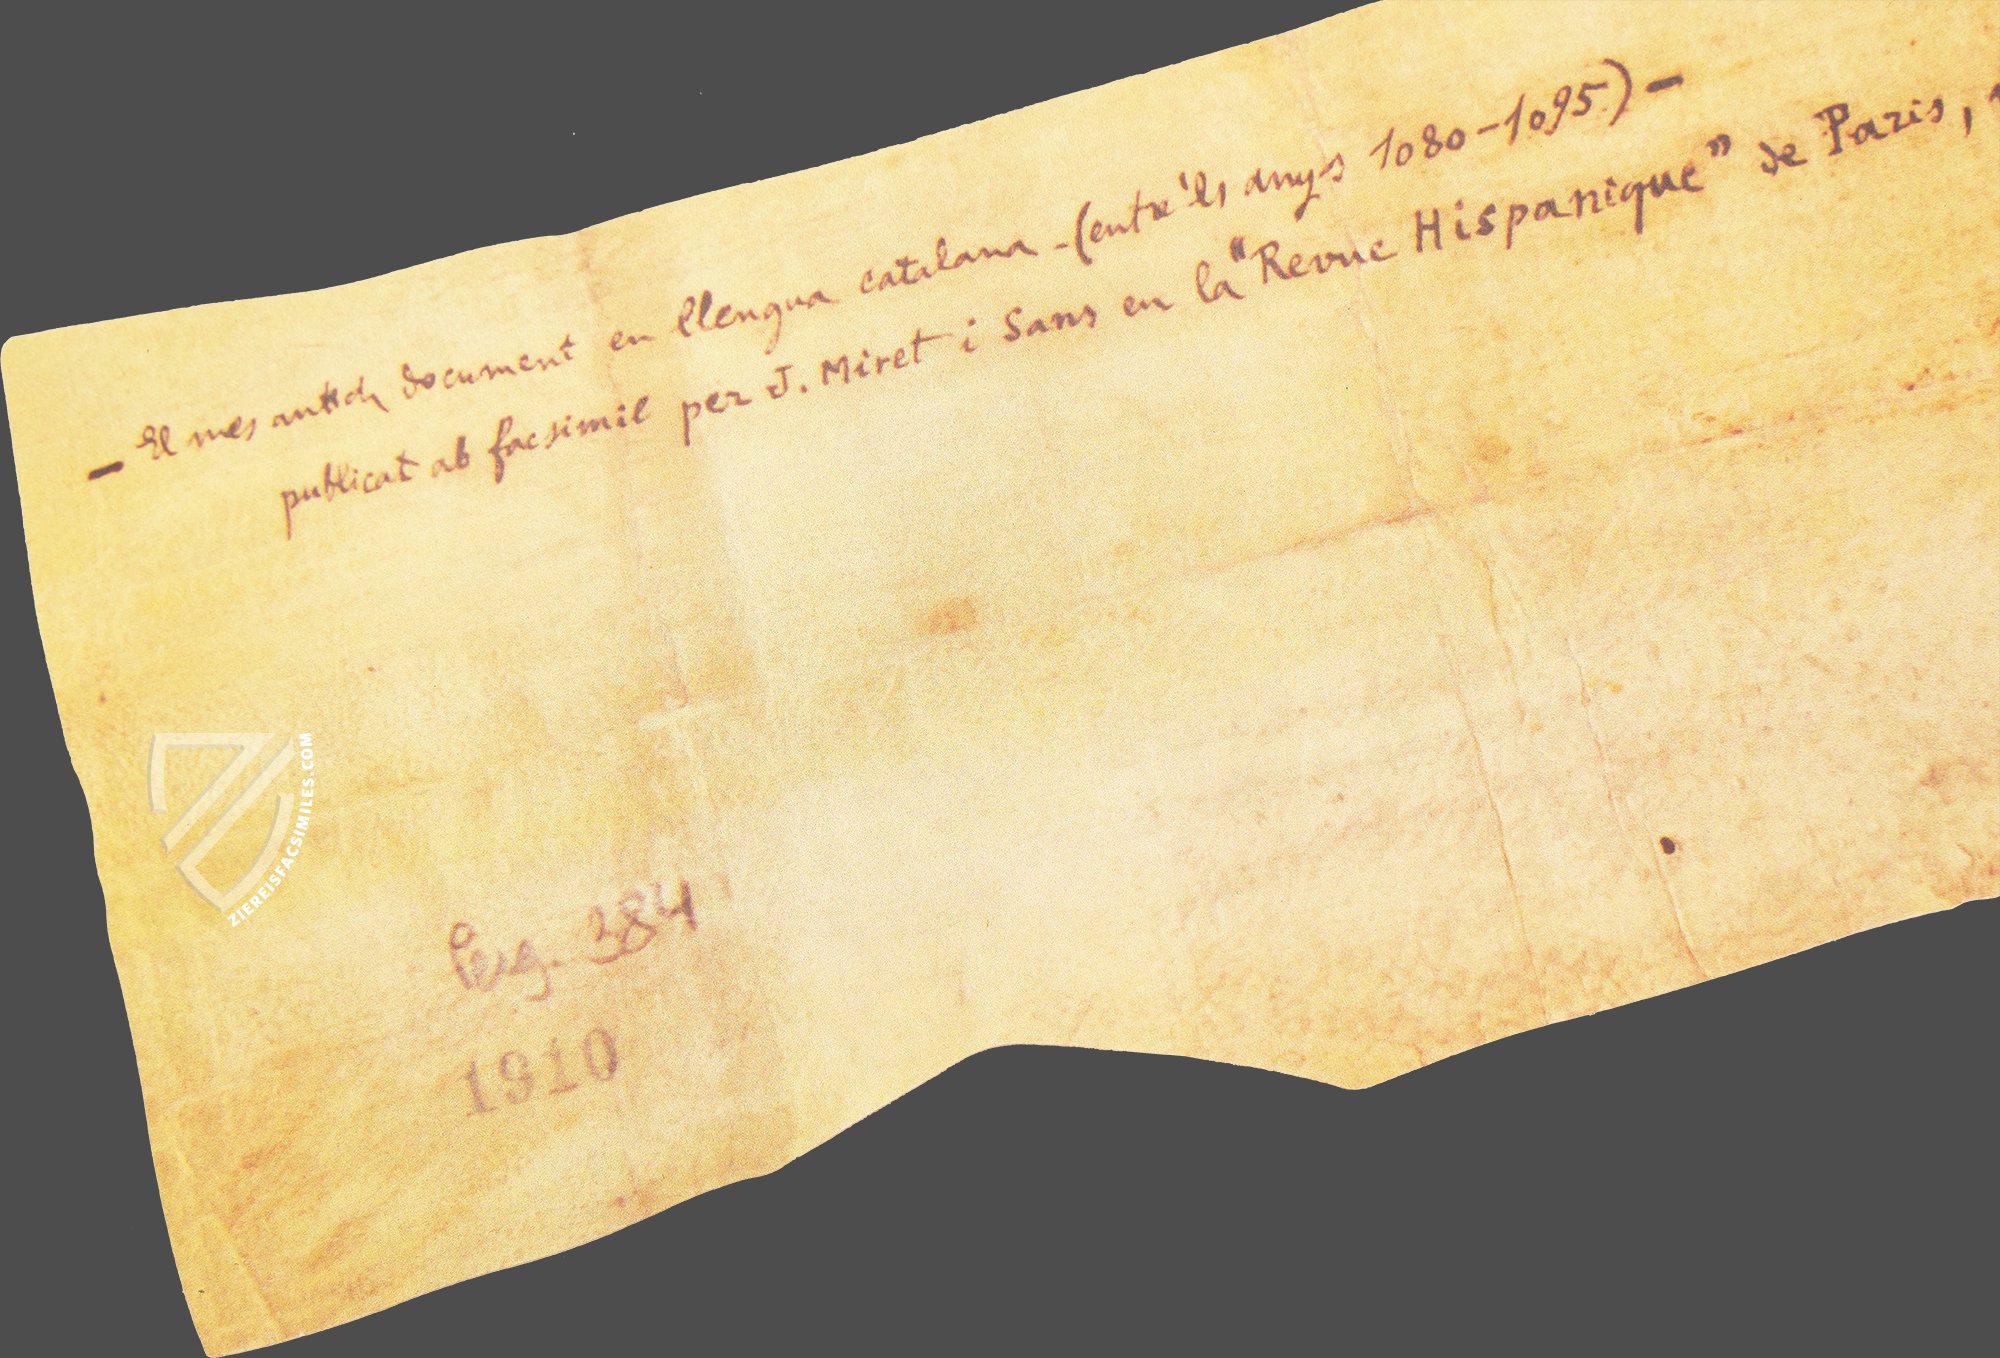 - El mes antich document en llengua catalana - (entre 'ls anys 1080-1095) -
publicat ab facsimil per J. Miret i Sans en la "Revue Hispanique" de Paris, 1
Perg. 384
1910
ZIEREISFACSIMILES.COM